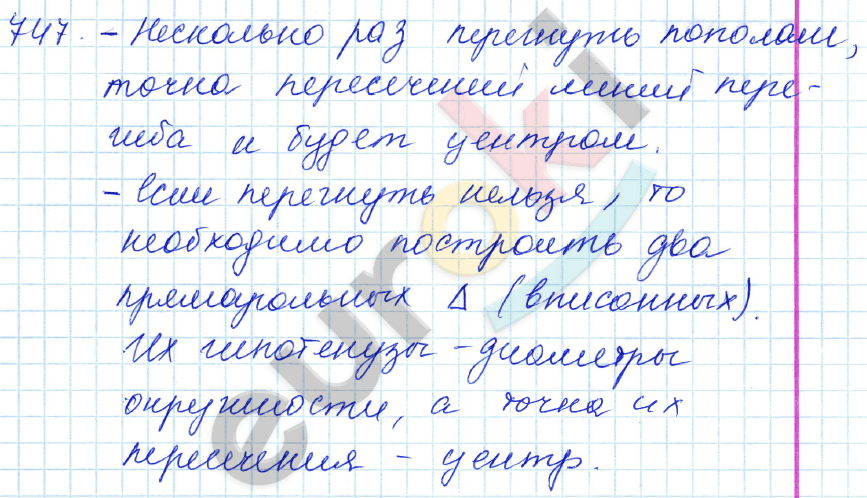 747. – Несколько раз перегнуть пополам,
точка пересечений линий пере-
гиба и будет центром.
– Если перегнуть нельзя, то
необходимо построить два
прямоугольных Δ (вписанных).
Их гипотенузы – диаметры
окружности, а точка их
пересечения – центр.
euroki